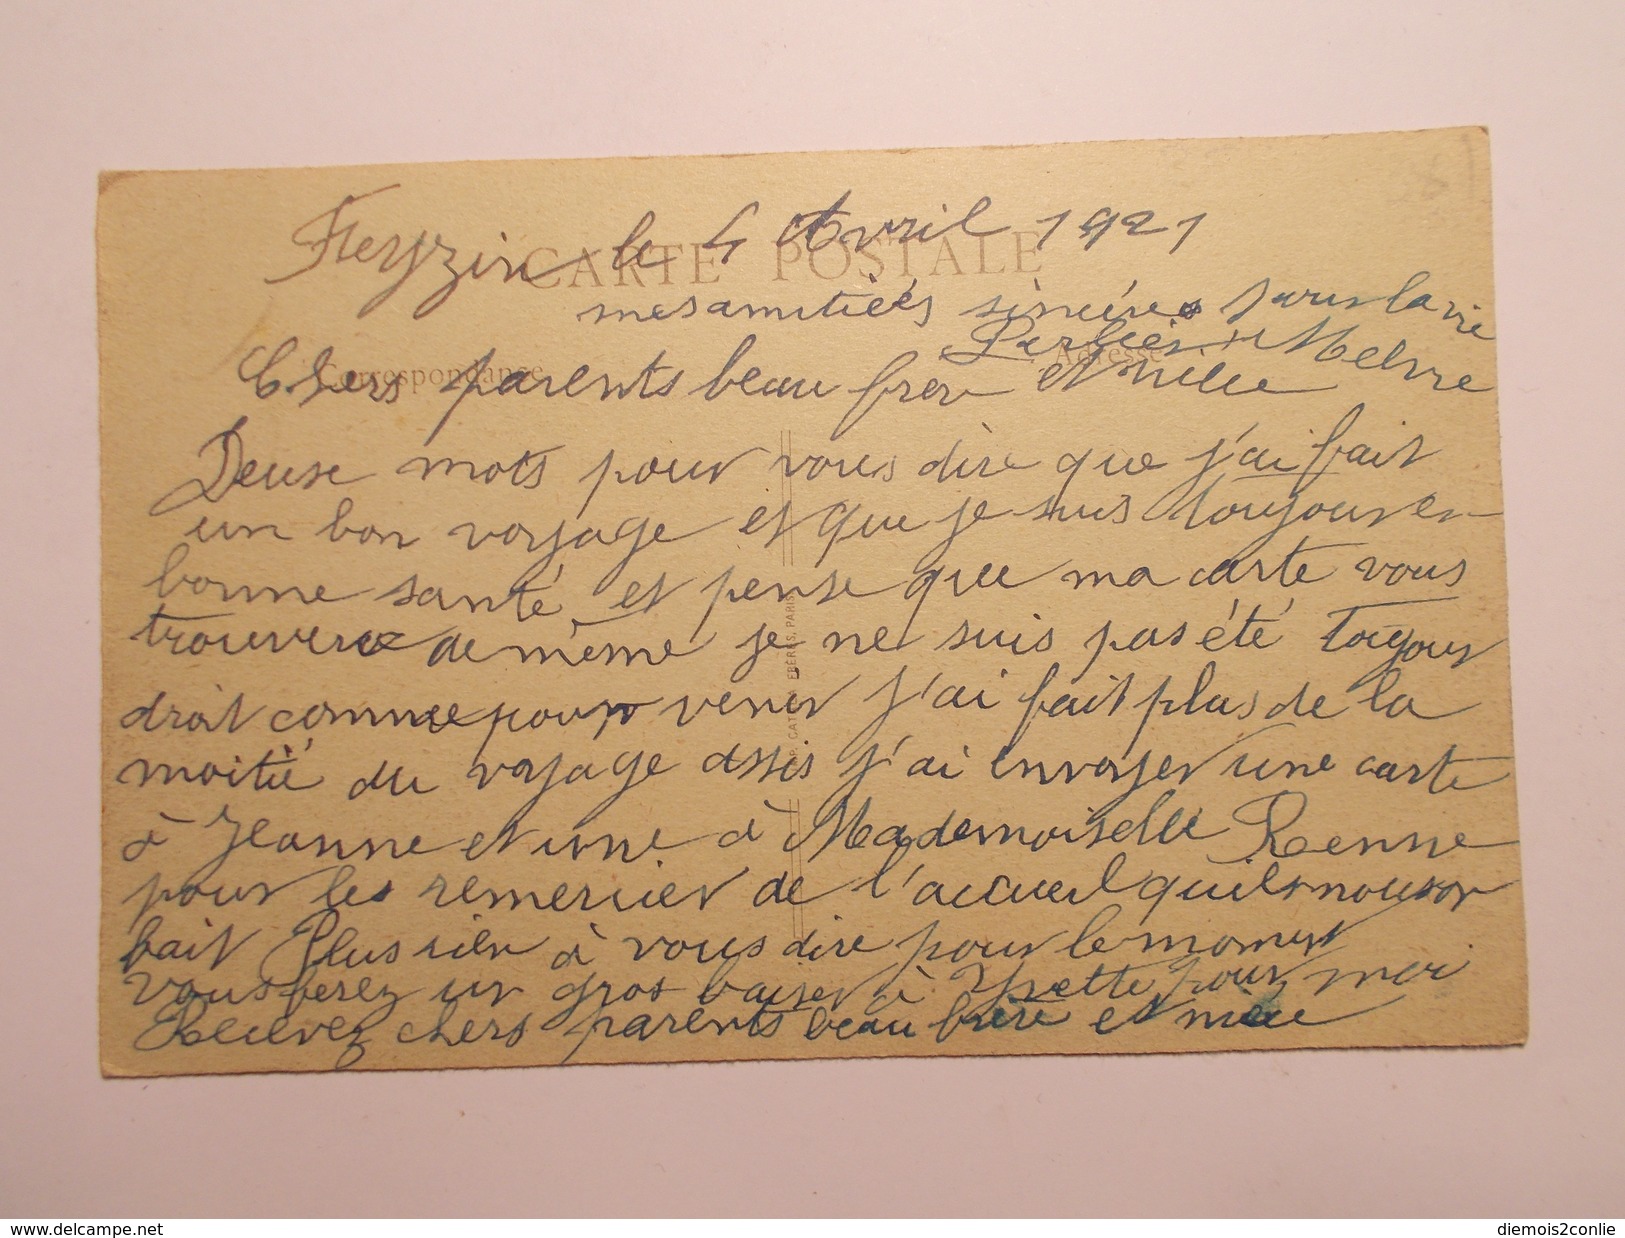 Feyzin le 4 Avril 1921
CARTE POSTALE
mes amitiées sincères pour la vie
Correspondance
Adresse
Chers parents beau frer et niece
Deuse mots pour vous dire que j'ai fait
un bon voyage et que je suis toujour en
bonne santé et pense que ma carte vous
trouverez de même je ne suis pas été toujour
droit comme pour venir j'ai fait plus de la
moitié du voyage assis j'ai envoyer une carte
à Jeanne et une à Mademoiselle Renne
pour les remercier de l'accueil quils nous on
fait Plus rien à vous dire pour le moment
vous ferez un gros baiser à Yvette pour moi
Recevez chers parents beau frère et niece
IMP. CATALA FRÈRES, PARIS
www.delcampe.net
diemois2conlie